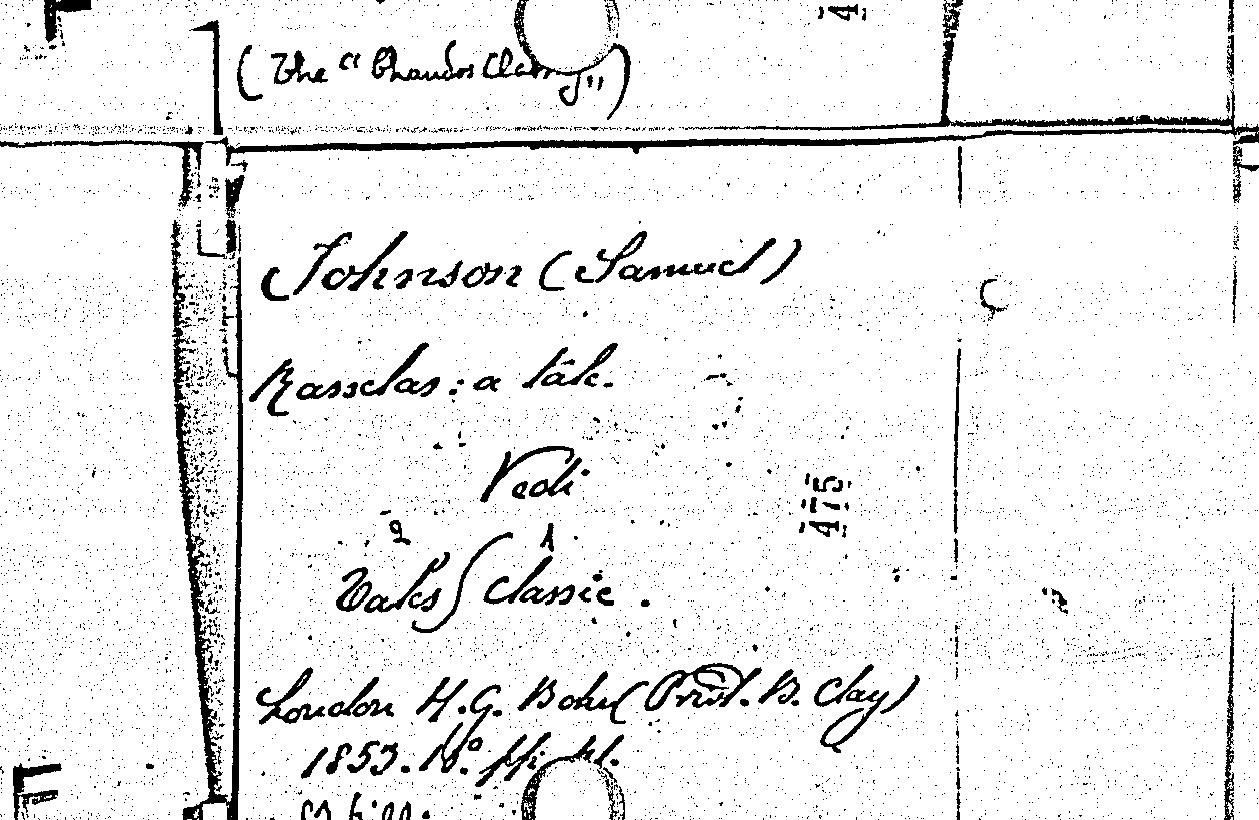 (The "Chandos Classics")
Johnson (Samuel)
Rasselas: a tale.
Vedi
475
2 1
Tales Classic.
London H.G. Bohn (Print. B. Clay)
1853. 16°.